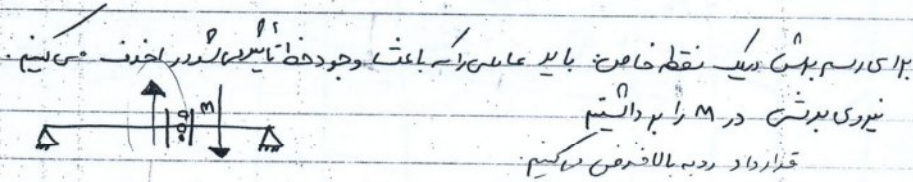 برای رسم برش در یک نقطه خاص: باید عاملی را که باعث وجود خط تأثیر می شود را حذف می کنیم.
نیروی برشی در M را برداشتیم
قرارداد رو به بالا فرض می کنیم
M